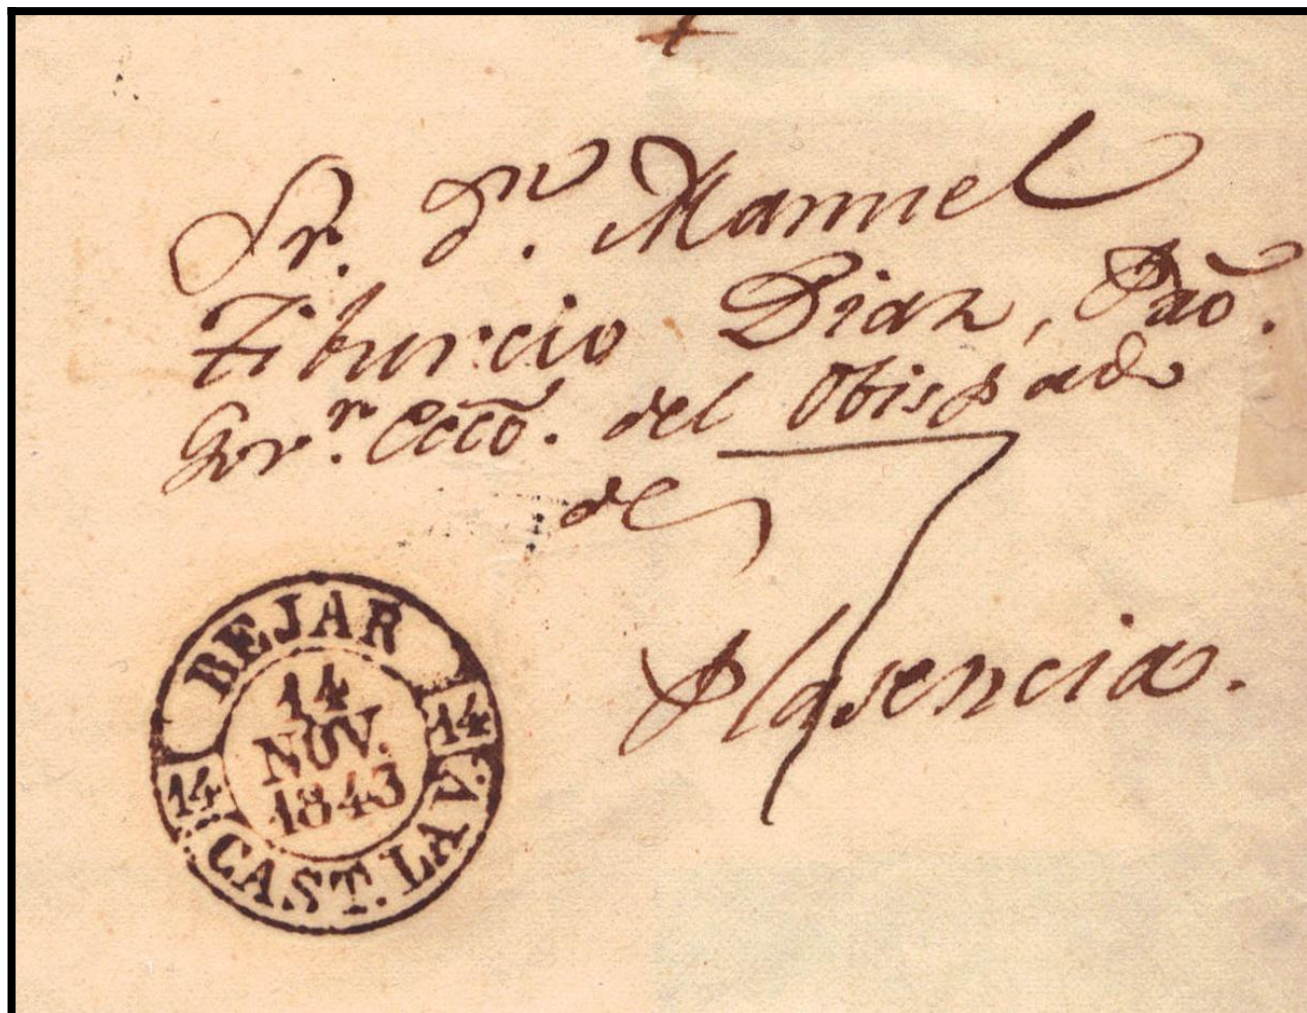 Sr. Dn. Manuel
Tiburcio Diaz, Pño.
Gorr. Ecco. del Obispado
de
Plasencia.
BEJAR
14
NOV.
1843
14
14
CAST. LA V.